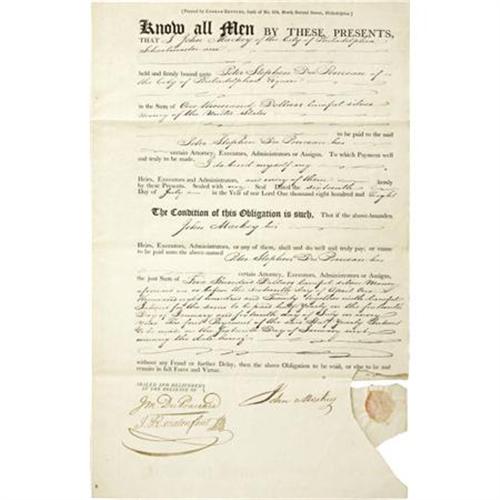 [Printed by Conrad Zentler, back of No. 108, North Second Street, Philadelphia.]
Know all Men BY THESE PRESENTS,
THAT I John Mackey of the City of Philadelphia
am
held and firmly bound unto Peter Stephen Du Ponceau of
the City of Philadelphia Esquire
in the Sum of One thousand Dollars lawful silver
money of the United States
to be paid to the said
Peter Stephen Du Ponceau his
certain Attorney, Executors, Administrators or Assigns. To which Payment well
and truly to be made, I do bind myself my
Heirs, Executors and Administrators, and every of them firmly
by these Presents. Sealed with my Seal Dated the sixteenth
Day of July in the Year of our Lord One thousand eight hundred and Eight
The Condition of this Obligation is such, That if the above-bounden
John Mackey his
Heirs, Executors, Administrators, or any of them, shall and do well and truly pay, or cause
to be paid unto the above-named Peter Stephen Du Ponceau his
certain Attorney, Executors, Administrators or Assigns,
the just Sum of Five Hundred Dollars lawful silver Money
aforesaid on or before the day of April One
thousand eight hundred and with lawful
Interest for the same to be paid half Yearly on the
Day of January and Day of July in every
Year the first Payment of the Half Yearly
to be made on the Day of January next
without any Fraud or further Delay, then the above Obligation to be void, or else to be and
remain in full Force and Virtue.
SEALED AND DELIVERED
IN THE PRESENCE OF
John Mackey